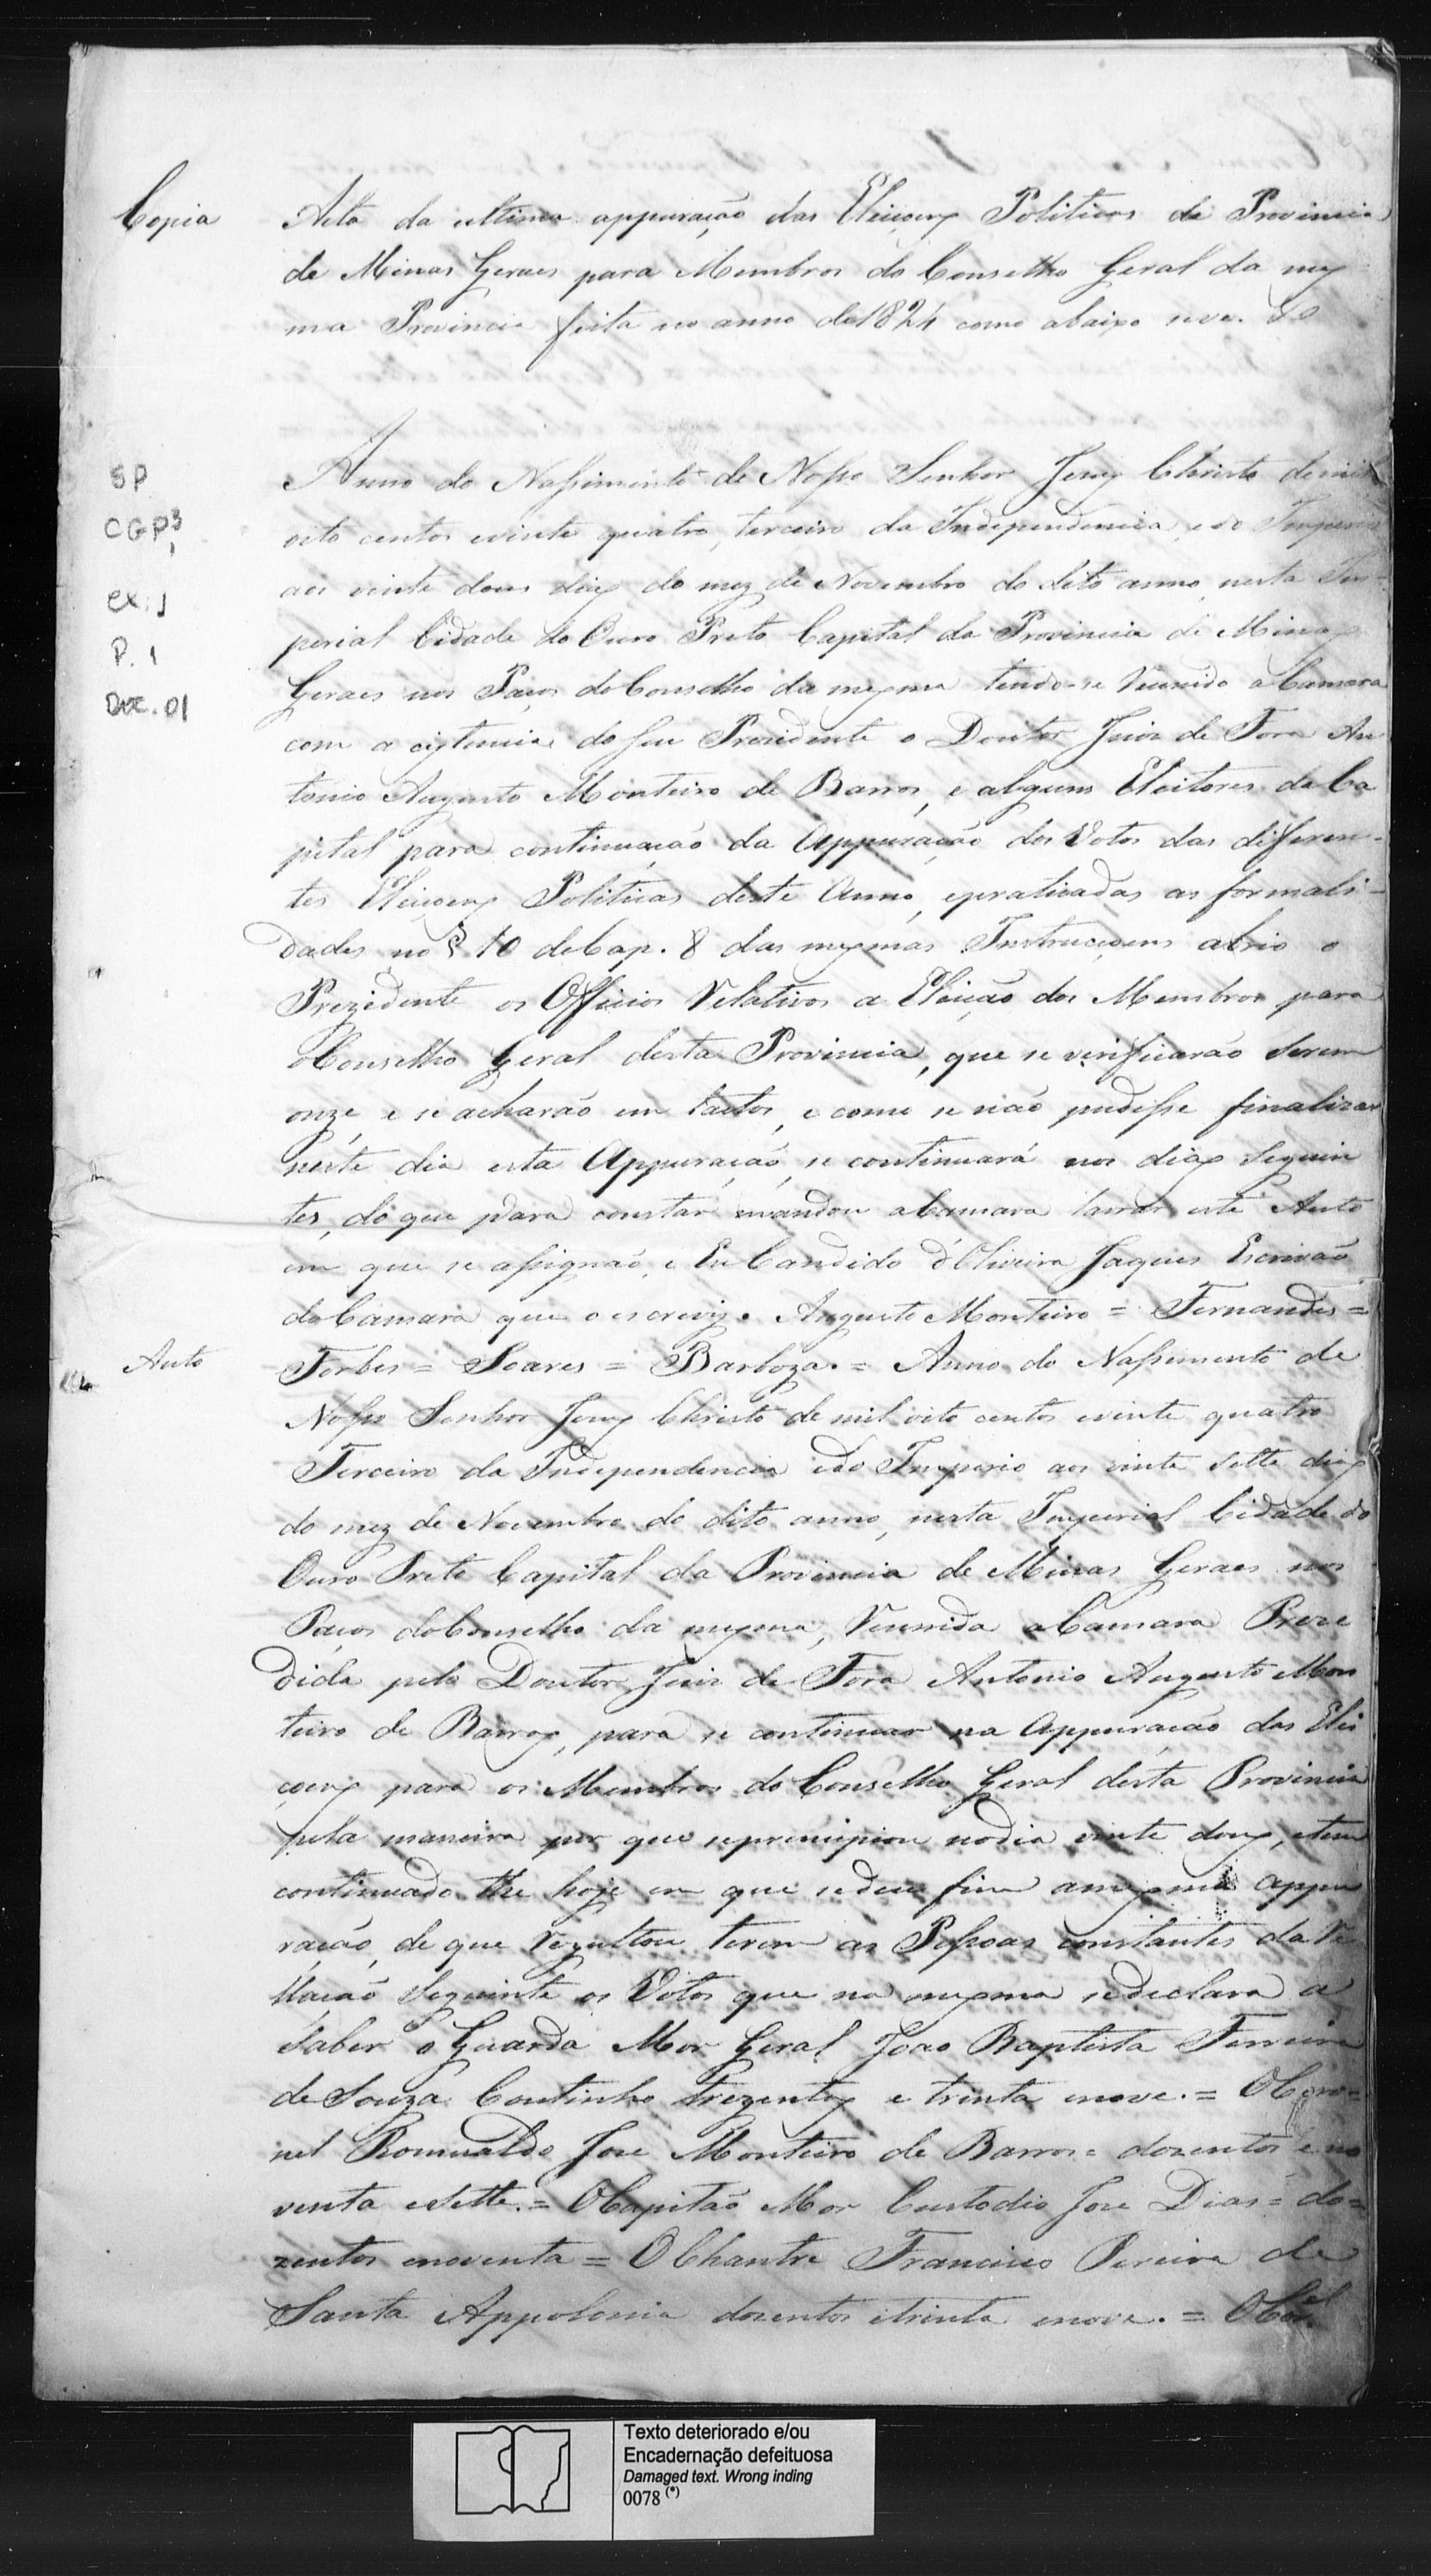 Copia
Acta da ultima appuração das Eleiçoens Politicas da Provincia
de Minas Geraes para Membros do Conselho Geral da mes
ma Provincia feita no anno de 1824 como abaixo se ve. &ª
SP
CGP³
cx. 1
P. 1
Doc. 01
Anno do Nassimento de Nosso Senhor Jesus Christo de mil
oito centos e vinte quatro, terceiro da Independencia, e do Imperio
aos vinte dous dias do mez de Novembro do dito anno, nesta Im=
perial Cidade do Ouro Preto Capital da Provincia de Minas
Geraes nos Paços do Conselho da mesma tendo-se Reunido a Camara
com a cistencia do seu Prezidente o Doutor Juiz de Fora An
tonio Augusto Monteiro de Barros, e alguns Eleitores da Ca
pital para continuação da Appuração dos Votos das diferen-
tes Eleiçoens Politicas deste Anno, e praticadas as formali-
dades no § 10 do Cap. 8 das mesmas Instrucçoens abrio o
Prezidente os Officios Relativos a Eleição dos Membros para
o Conselho Geral desta Provincia, que se verificarão serem
onze, e se acharão em tactos, e como se não pudesse finalizar
neste dia esta Appuração, se continuará nos dias seguin
tes, do que para constar mandou a Camara lavrar este Auto
em que se assignão, e Eu Candido d'Oliveira Jaques Escrivão
da Camara que o escrevy. Augusto Monteiro = Fernandes =
Auto
Forbes = Soares = Barboza. = Anno do Nassimento de
Nosso Senhor Jesus Christo de mil oito centos e vinte quatro
Terceiro da Independencia e do Imperio aos vinte sette dias
do mez de Novembro do dito anno, nesta Imperial Cidade do
Ouro Preto Capital da Provincia de Minas Geraes nos
Paços do Conselho da mesma, Reunida a Camara Preze
dida pelo Doutor Juiz de Fora Antonio Augusto Mon
teiro de Barros, para se continuar na Appuração das Elei
çoens para os Membros do Conselho Geral desta Provincia
pela maneira por que se principiou no dia vinte dous, e tem
continuado the hoje em que se deu fim a mesma appu
ração, de que Rezultou terem as Pessoas constantes da Re
llação Seguinte os Votos que na mesma se declara a
saber o Guarda Mor Geral Joao Baptista Ferreira
de Souza Coutinho trezentos e trinta e nove. = O Coro=
nel Romualdo Joze Monteiro de Barros = dozentos e no
venta e sette. = O Capitão Mor Custodio Joze Dias = do=
zentos e noventa = O Chantre Francisco Pereira de
Santa Appolonia dozentos e trinta e nove. = O Cor.el
Texto deteriorado e/ou
Encadernação defeituosa
Damaged text. Wrong inding
0078 (*)